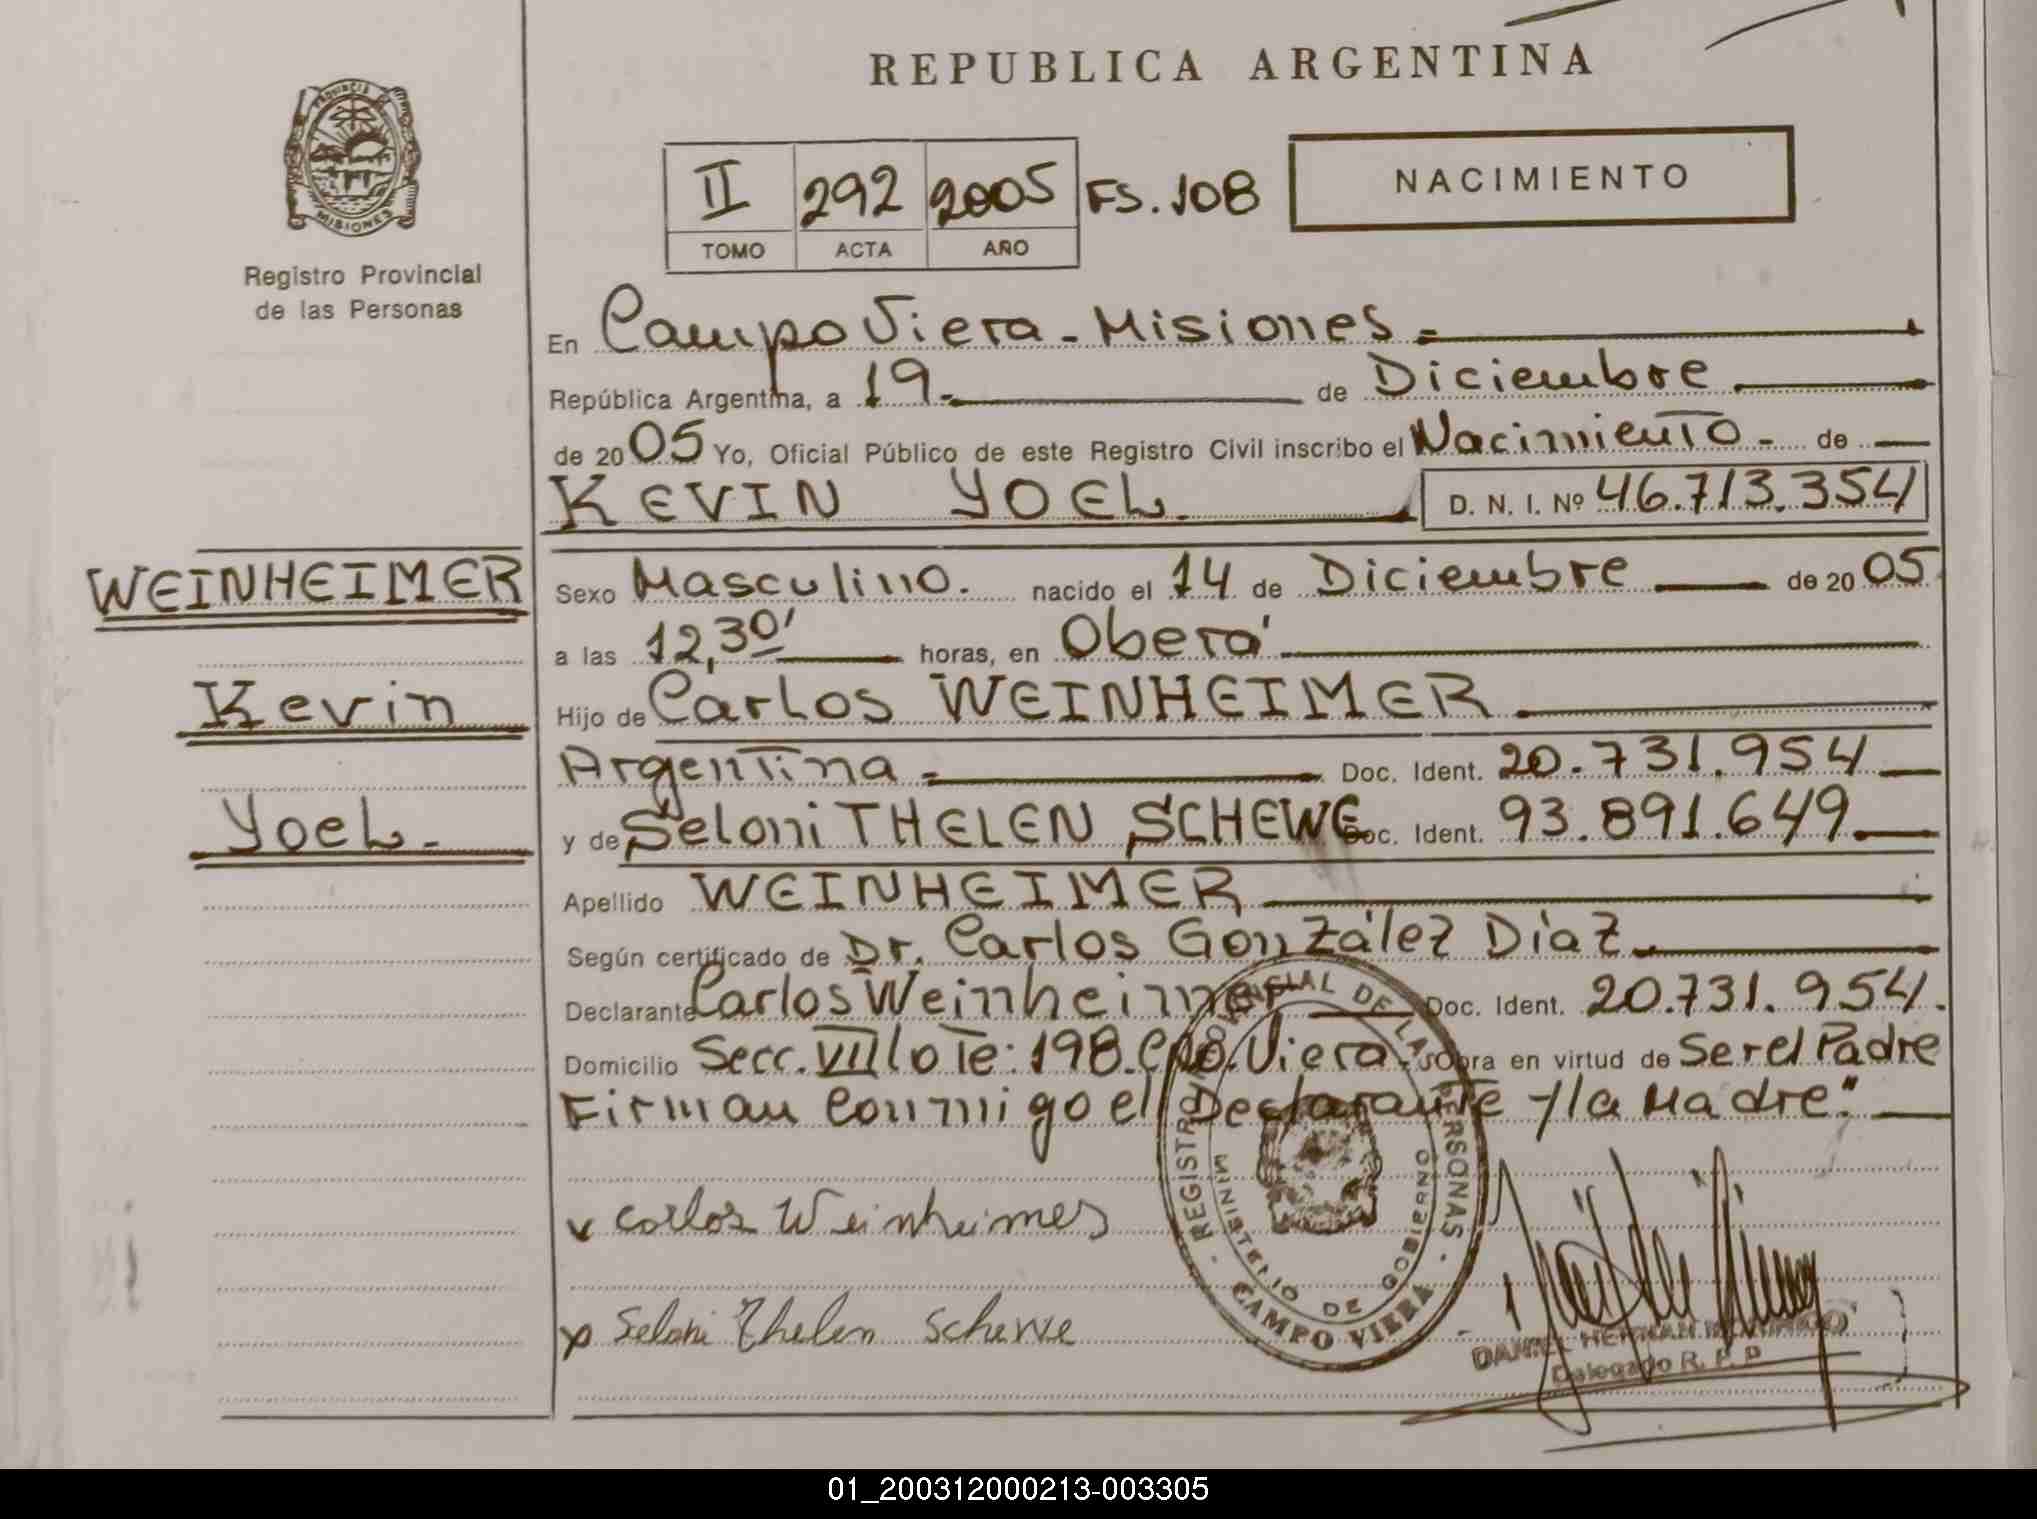 REPUBLICA ARGENTINA
PROVINCIA DE
MISIONES
Registro Provincial
de las Personas
II 292 2005 FS. 108
TOMO ACTA AÑO
NACIMIENTO
En Campo Viera - Misiones
República Argentina, a 19 de Diciembre
de 2005 Yo, Oficial Público de este Registro Civil inscribo el Nacimiento - de
KEVIN YOEL D. N. I. Nº 46.713.354
WEINHEIMER
Kevin
Yoel.
Sexo Masculino. nacido el 14 de Diciembre de 2005
a las 12,30' horas, en Oberá
Hijo de Carlos WEINHEIMER
Argentina Doc. Ident. 20.731.954
y de Seloni THELEN SCHEWE Doc. Ident. 93.891.649
Apellido WEINHEIMER
Según certificado de Dr. Carlos González Díaz
Declarante Carlos Weinheimer Doc. Ident. 20.731.954.
Domicilio Secc. VII lote: 198. Cpo. Viera obra en virtud de Ser el Padre
Firman conmigo el Declarante y la Madre."
REGISTRO PROVINCIAL DE LAS PERSONAS
MINISTERIO DE GOBIERNO
CAMPO VIERA
Carlos Weinheimer
x Seloni Thelen Schewe
DANIEL HERNAN
Delegado R. P. P
01_200312000213-003305